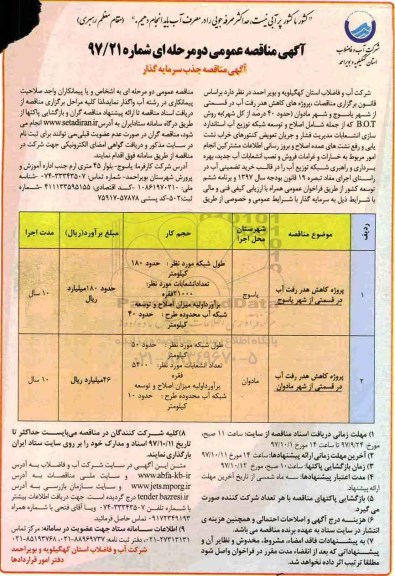 "کشور ما کشور پر آبی نیست، حداکثر صرفه جویی را در مصرف آب باید انجام دهیم." (مقام معظم رهبری)
شرکت آب و فاضلاب
استان کهگیلویه و بویراحمد
آگهی مناقصه عمومی دو مرحله ای شماره ۹۷/۲۱
آگهی مناقصه جذب سرمایه گذار
شرکت آب و فاضلاب استان کهگیلویه و بویر احمد در نظر دارد براساس
قانون برگزاری مناقصات پروژه های کاهش هدر رفت آب در قسمتی
از شهر یاسوج و شهر مادوان (حدود ۴۰ درصد از کل شهر) به روش
B.O.T که از جمله شامل اصلاح و توسعه شبکه توزیع آب استاندارد
سازی انشعابات مدیریت فشار و جریان تعویض کنتورهای خراب نشت
یابی و رفع نشت های عمده اصلاح و بروز رسانی اطلاعات مشترکین انجام
امور مربوط به خسارات و غرامات فروش و نصب انشعابات آب جدید، بهره
برداری و راهبری شبکه توزیع آب را در قالب خرید تضمینی آب در
راستای اجرای مفاد تبصره ۱۹ قانون بودجه سال ۱۳۹۷ و برنامه ششم
توسعه کشور از طریق فراخوان عمومی همراه با ارزیابی کیفی فنی و مالی
با شرایط ذیل به سرمایه گذار با شرایط عمومی و خصوصی از طریق
مناقصه عمومی دو مرحله ای به اشخاص و یا پیمانکاران واجد صلاحیت
پیمانکاری در رشته آب واگذار نماید لذا کلیه مراحل برگزاری مناقصه از
دریافت اسناد مناقصه تا ارائه پیشنهاد مناقصه گران و بازگشایی پاکتها از
طریق درگاه سامانه ستاد ایران به آدرس www.setadiran.ir انجام می
شود، مناقصه گران در صورت عدم عضویت قبلی می توانند برای ثبت نام
در سایت مذکور و دریافت گواهی امضای الکترونیکی جهت شرکت در
مناقصه از طریق سامانه فوق اقدام نمایند.
آدرس شرکت کارفرما: یاسوج- بلوار ۴۵ متری ارم جنب اداره آموزش و
پرورش شهرستان بویراحمد- شماره تماس: ۰۷۴-۳۳۳۴۳۵۰۷ شناسه
ردیف
موضوع مناقصه
شهرستان محل اجرا
حجم کار
مبلغ برآورد(ریال)
مدت اجرا
۱
پروژه کاهش هدر رفت آب در قسمتی از شهر یاسوج
یاسوج
طول شبکه مورد نظر: حدود ۱۸۰ کیلومتر
تعداد انشعابات مورد نظر: ۲۱۰۰۰ فقره
برآورد اولیه میزان اصلاح و توسعه شبکه آب محدوده طرح: حدود ۴۰ کیلومتر
حدود ۱۸۰ میلیارد ریال
۱۰ سال
۲
پروژه کاهش هدر رفت آب در قسمتی از شهر مادوان
مادوان
طول شبکه مورد نظر: حدود ۵۰ کیلومتر
تعداد انشعابات مورد نظر: ۵۴۰۰ فقره
برآورد اولیه میزان اصلاح و توسعه شبکه آب محدوده طرح: حدود ۱۰ کیلومتر
۴۶ میلیارد ریال
۱۰ سال
۱) مهلت زمانی دریافت اسناد مناقصه از سایت: ساعت ۱۱ صبح،
مورخ ۹۷/۹/۲۴ تا ساعت ۱۴ مورخ ۹۷/۱۰/۱
۲) آخرین مهلت زمانی ارائه پیشنهادها: ساعت ۱۴ مورخ ۹۷/۱۰/۱۱
۳) زمان بازگشایی پاکتها: ساعت ۱۰ صبح، مورخ ۹۷/۱۰/۱۲
۴) مدت اعتبار پیشنهادها: سه ماه شمسی از تاریخ آخرین مهلت
ارائه پیشنهاد
۵) بازگشایی پاکتهای مناقصه با هر تعداد شرکت کننده صورت
می گیرد.
۶) هزینه درج آگهی و اصلاحات احتمالی و همچنین هزینه ی
انتشار در سایت ستاد به عهده برنده مناقصه می باشد.
۷) به پیشنهادات فاقد امضاء، مشروط، مخدوش و نظایر آن و
پیشنهاداتی که بعد از انقضاء مدت مقرر در فراخوان واصل شود
مطلقا ترتیب اثر داده نخواهد شد.
۸) کلیه شرکت کنندگان در مناقصه می بایست حداکثر تا
تاریخ ۹۷/۱۰/۱۱ اسناد و مدارک خود را بر روی سایت ستاد ایران
بارگذاری نمایند.
متن این آگهی در سایت شرکت آب و فاضلاب به آدرس
www.abfa-kb.ir و سایت ملی مناقصات به آدرس
درج گردیده است. جهت دریافت اطلاعات بیشتر
تماس حاصل فرمایید.
۹) اطلاعات سامانه ستاد جهت عضویت در سامانه: مرکز تماس
شرکت آب و فاضلاب استان کهگیلویه و بویراحمد
دفتر امور قراردادها